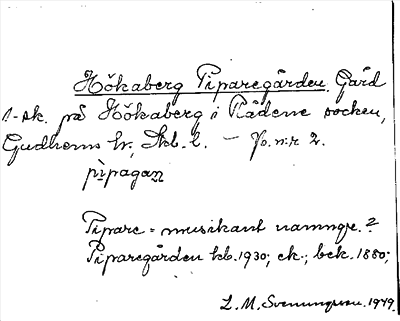 Hökaberg Piparegården. Gård
1-sk. på Hökaberg i Rådene socken,
Gudhems hr, Skb. l. — Jo. n:r 2.
pìpagaɲ
Pipare = musikant namngr. ?
Piparegården kb. 1930; ek.; bek. 1880;
L. M. Svenungsson. 1949.